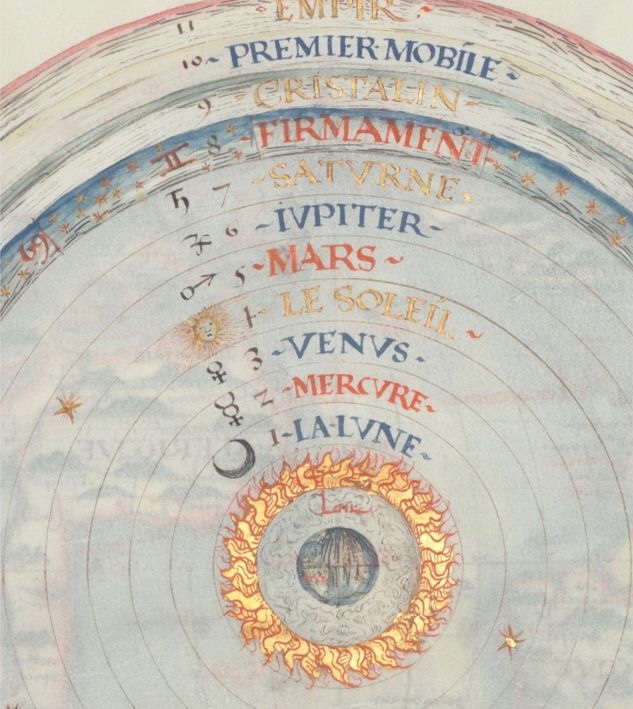 11 ~EMPIR~
10~ PREMIER·MOBILE~
9 ~CRISTALIN~
♊ 8 ~FIRMAMENT~
♋
♄ 7 ~SATVRNE~
♃ 6 ~IVPITER~
♂ 5 ~MARS~
4 ~LE SOLEIL~
♀ 3 ~VENVS~
☿ 2 ~MERCVRE~
☾ 1~LA·LVNE~